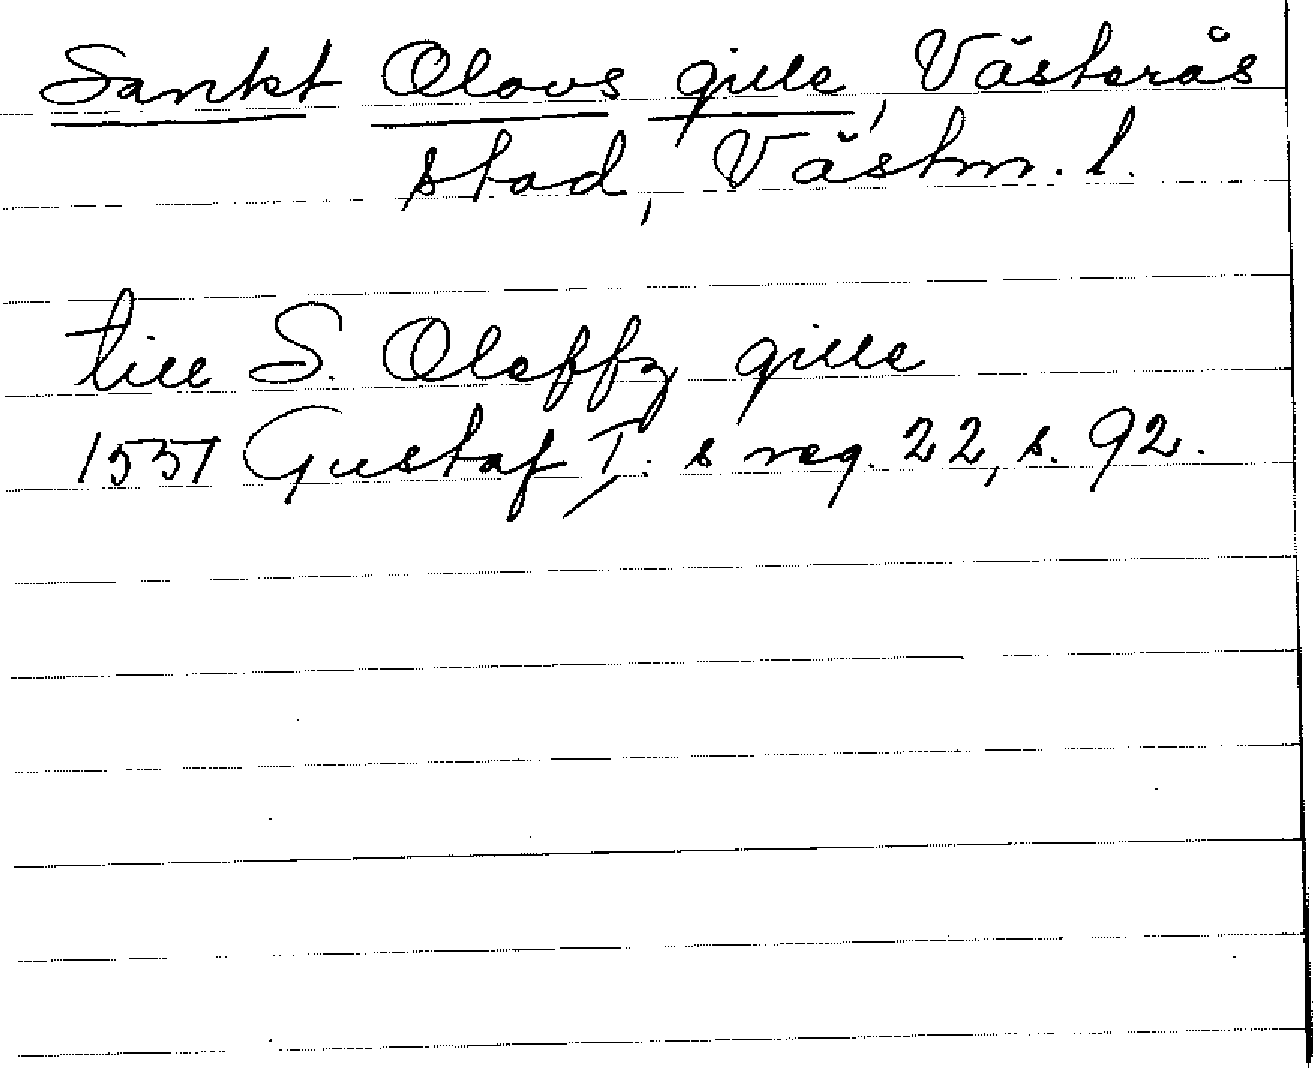 Sankt Olovs gille, Västerås
stad, Västm. l.
till S. Oleffz gille
1551 Gustaf I. s reg. 22, s. 92.